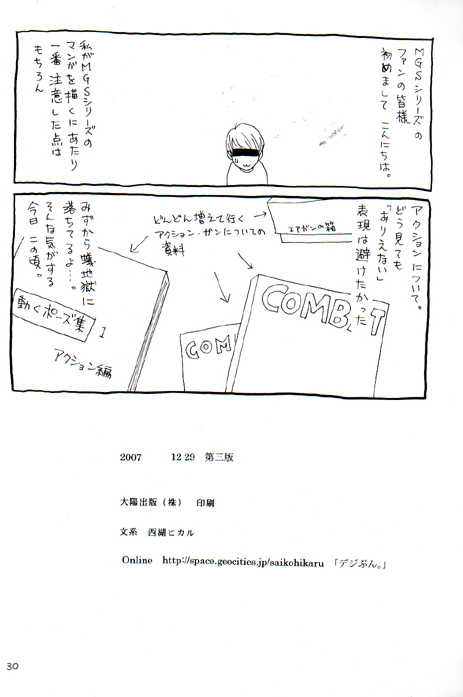 MGSシリーズの
ファンの皆様
初めまして こんにちは。
私がMGSシリーズの
マンガを描くにあたり
一番注意した点は
もちろん
アクションについて。
どう見ても
「ありえない」
表現は避けたかった
エアガンの箱
どんどん増えて行く
アクション・ガンについての
資料
COMBAT
COM
みずから
地獄に
落ちてるよ…。
そんな気がする
今日この頃。
動くポーズ集 1
アクション編
2007 12 29 第三版
大陽出版（株） 印刷
文系 西湖ヒカル
Online http://space.geocities.jp/saikohikaru 「デジぶん。」
30